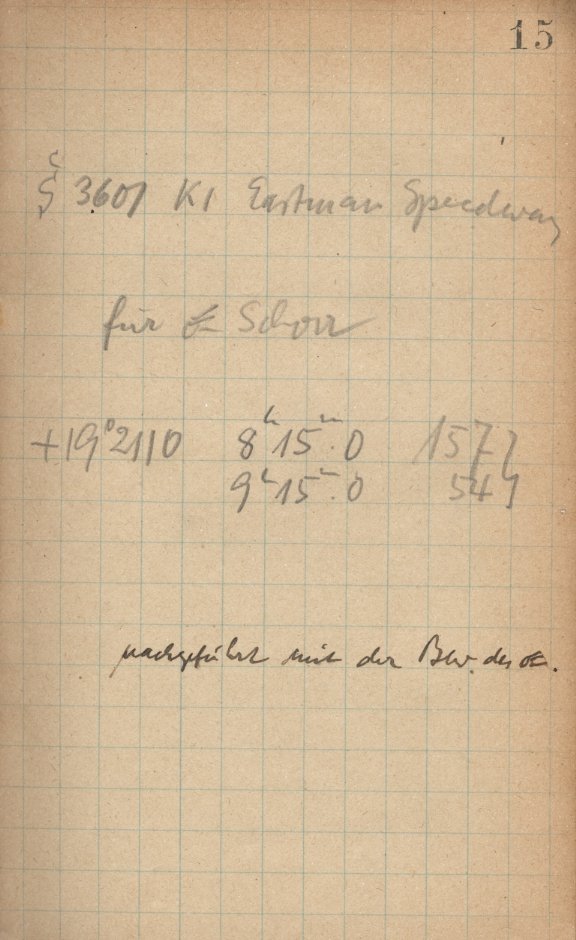 15
§ 3601 K1 Eastman Speedway
für ☄ Schorr
+19°2110 8ʰ15ᵐ.0 157
9ʰ15ᵐ.0 54
nachgeführt mit der Bew. des ☄.